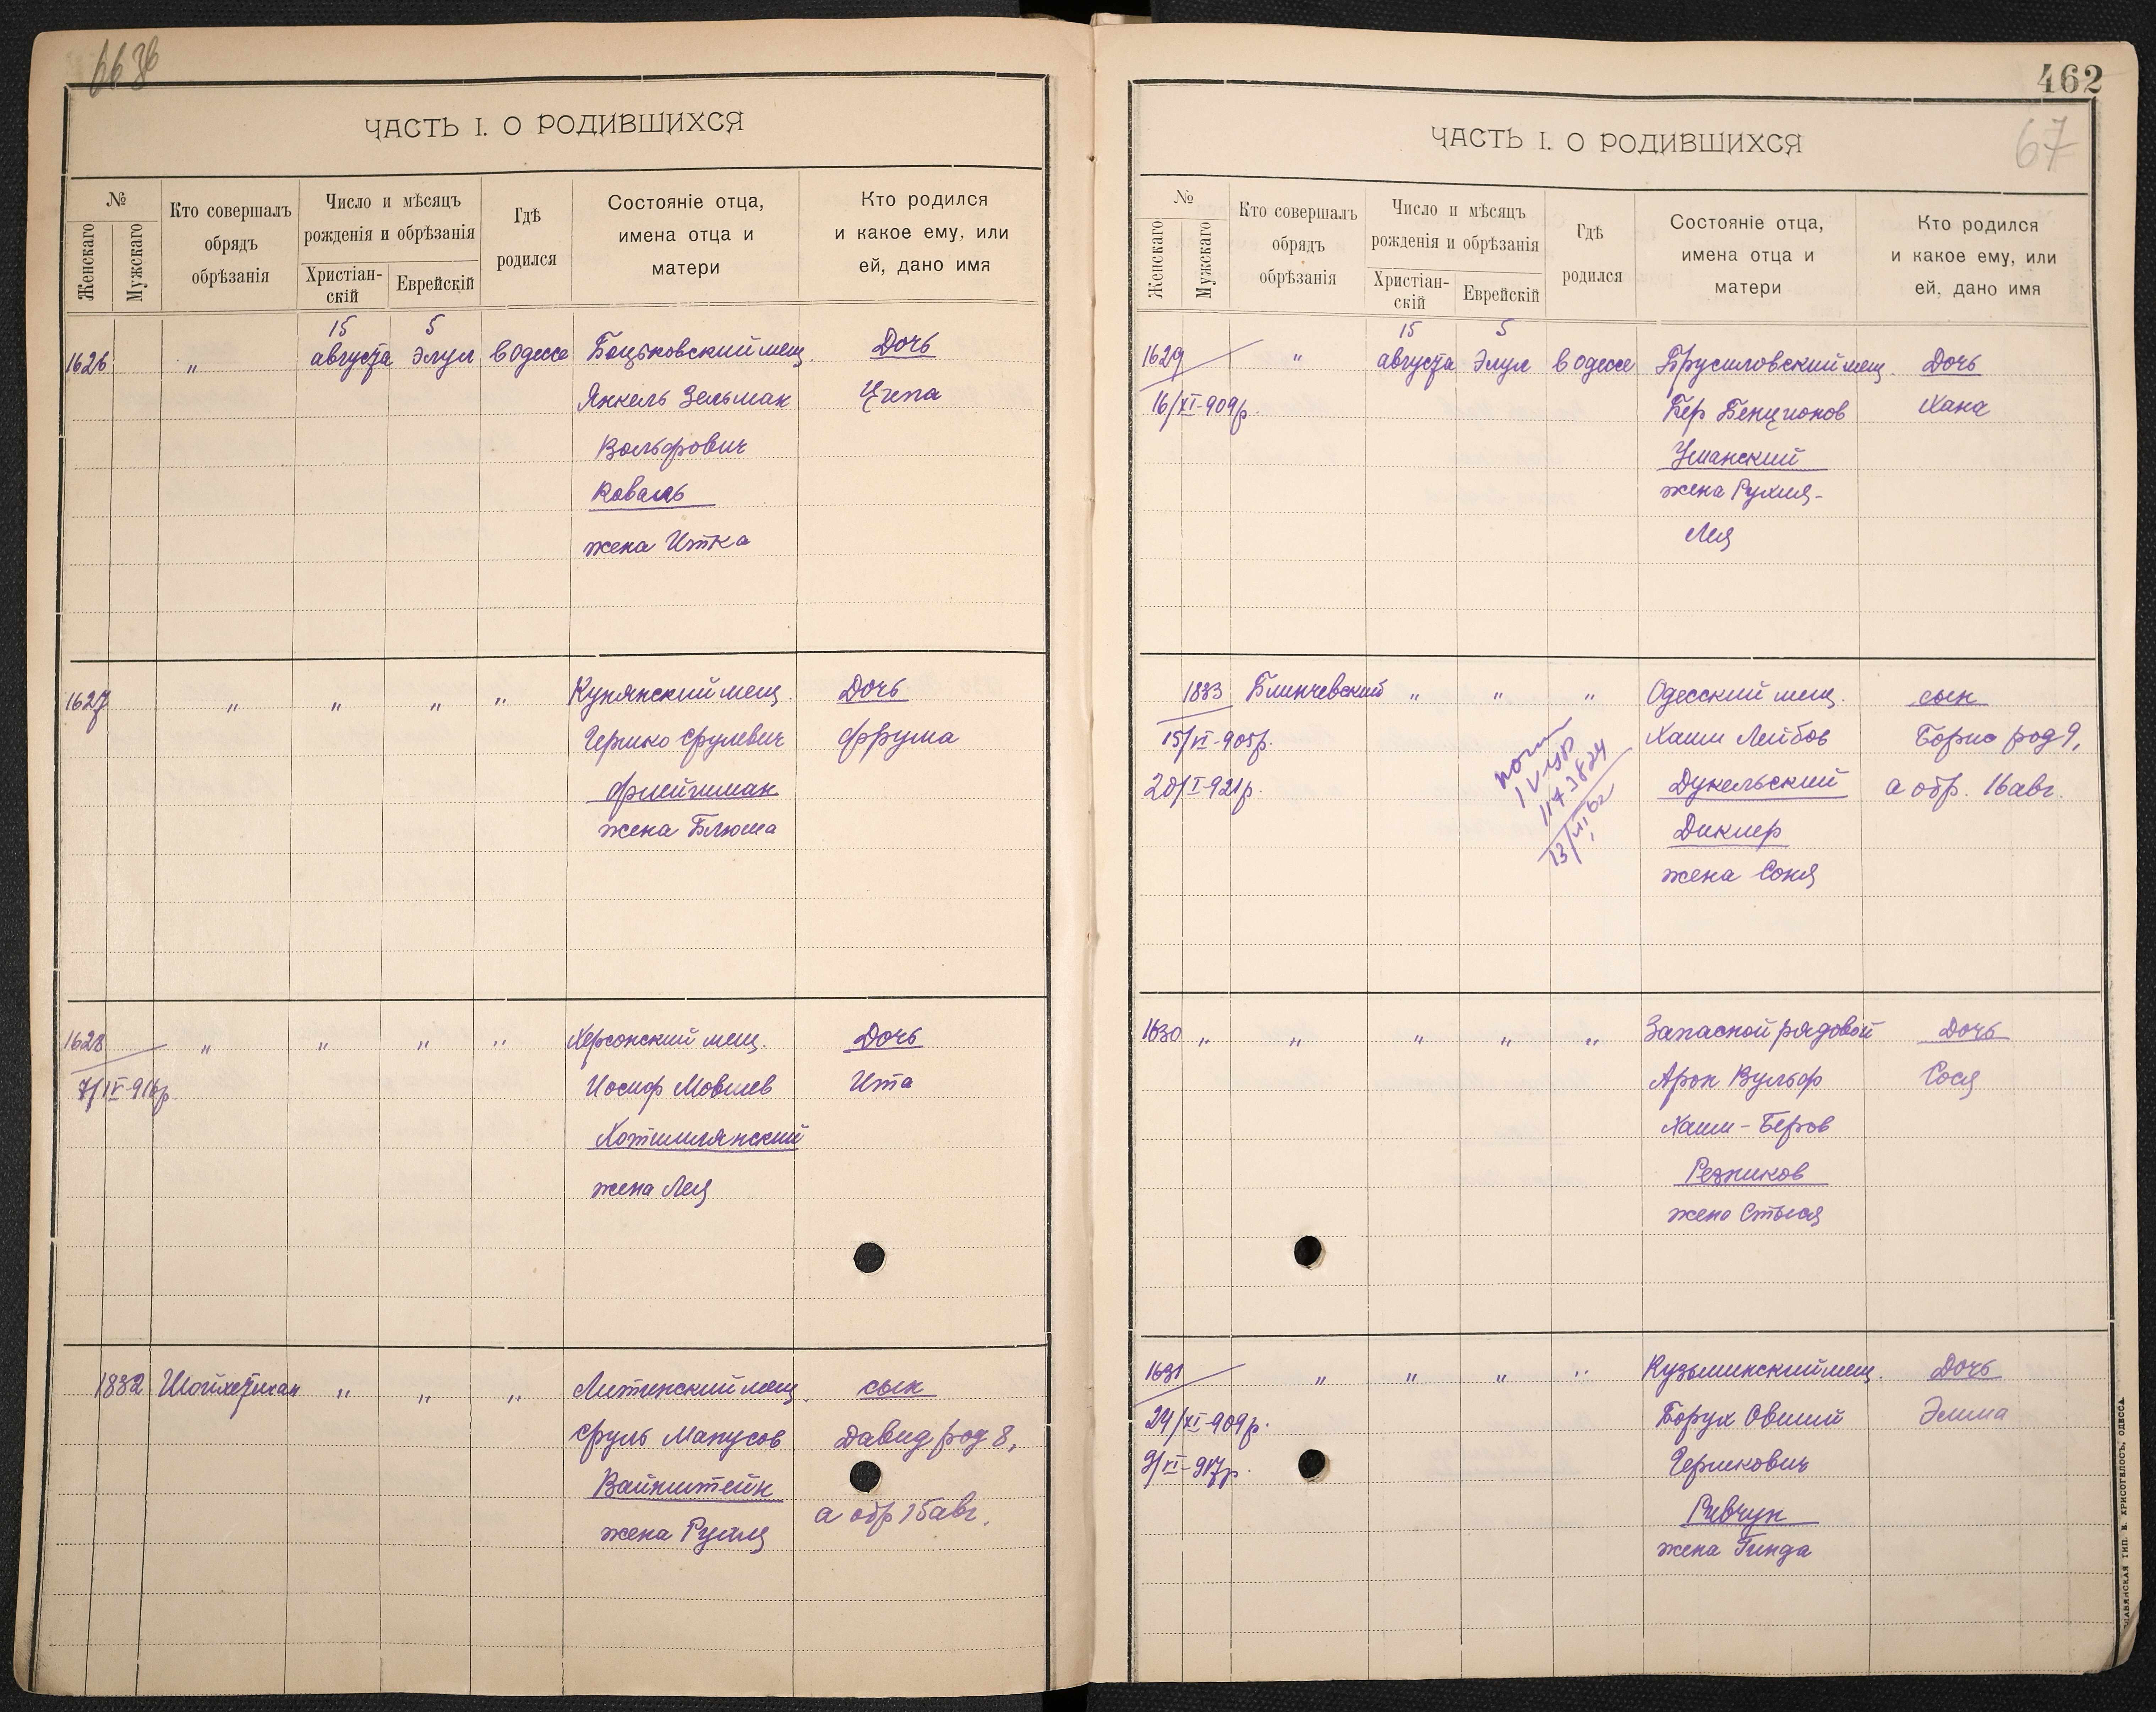 ЧАСТЬ I. О РОДИВШИХСЯ
№
Женскаго
Мужскаго
Кто совершалъ
обрядъ
обрѣзанія
Число и мѣсяцъ
рожденія и обрѣзанія
Христіан-
скій
Еврейскій
Гдѣ
родился
Состояніе отца,
имена отца и
матери
Кто родился
и какое ему, или
ей, дано имя
15 5
1626 " августа Элул в Одессе Боцьковский мещ. Дочь
Янкель Зельман Ципа
Вольфович
Коваль
жена Итка
1627 " " " " Купянский мещ. Дочь
Гершко Срулевич Фрума
Флейшман
жена Блюма
1628 " " " " Херсонский мещ. Дочь
7/IV-916р. Иосиф Мовшев Ита
Хотимлянский
жена Лея
1832 Шойхетман " " " Литинский мещ. сын
Сруль Манусов Давид род 8,
Вайнштейн
а обр 15 авг.
жена Рухля
462
67
ЧАСТЬ I. О РОДИВШИХСЯ
№
Женскаго
Мужскаго
Кто совершалъ
обрядъ
обрѣзанія
Число и мѣсяцъ
рожденія и обрѣзанія
Христіан-
скій
Еврейскій
Гдѣ
родился
Состояніе отца,
имена отца и
матери
Кто родился
и какое ему, или
ей, дано имя
15 5
1629 " августа Элул в Одессе Брусиловский мещ. Дочь
16/XI-909р. Бер Бенционов Хана
Уманский
жена Рухля-
Лея
1833 Блинчевский " " " Одесский мещ. сын
15/VI-905р. Хаим Лейбов Борис род 9,
20/I-921р. Дукельский а обр. 16 авг.
Диклер
жена Соня
1630 " " " " " Запасной рядовой Дочь
Арон Вульф Сося
Хаим-Беров
Резников
жена Стыся
1631 " " " " Кузьминский мещ. Дочь
24/XI-909р. Борух Овший Эмма
9/XI-917р. Гершкович
Ривчун
жена Гинда
СЛАВЯНСКАЯ ТИП. Н. ХРИСОГЕЛОСЪ, ОДЕССА